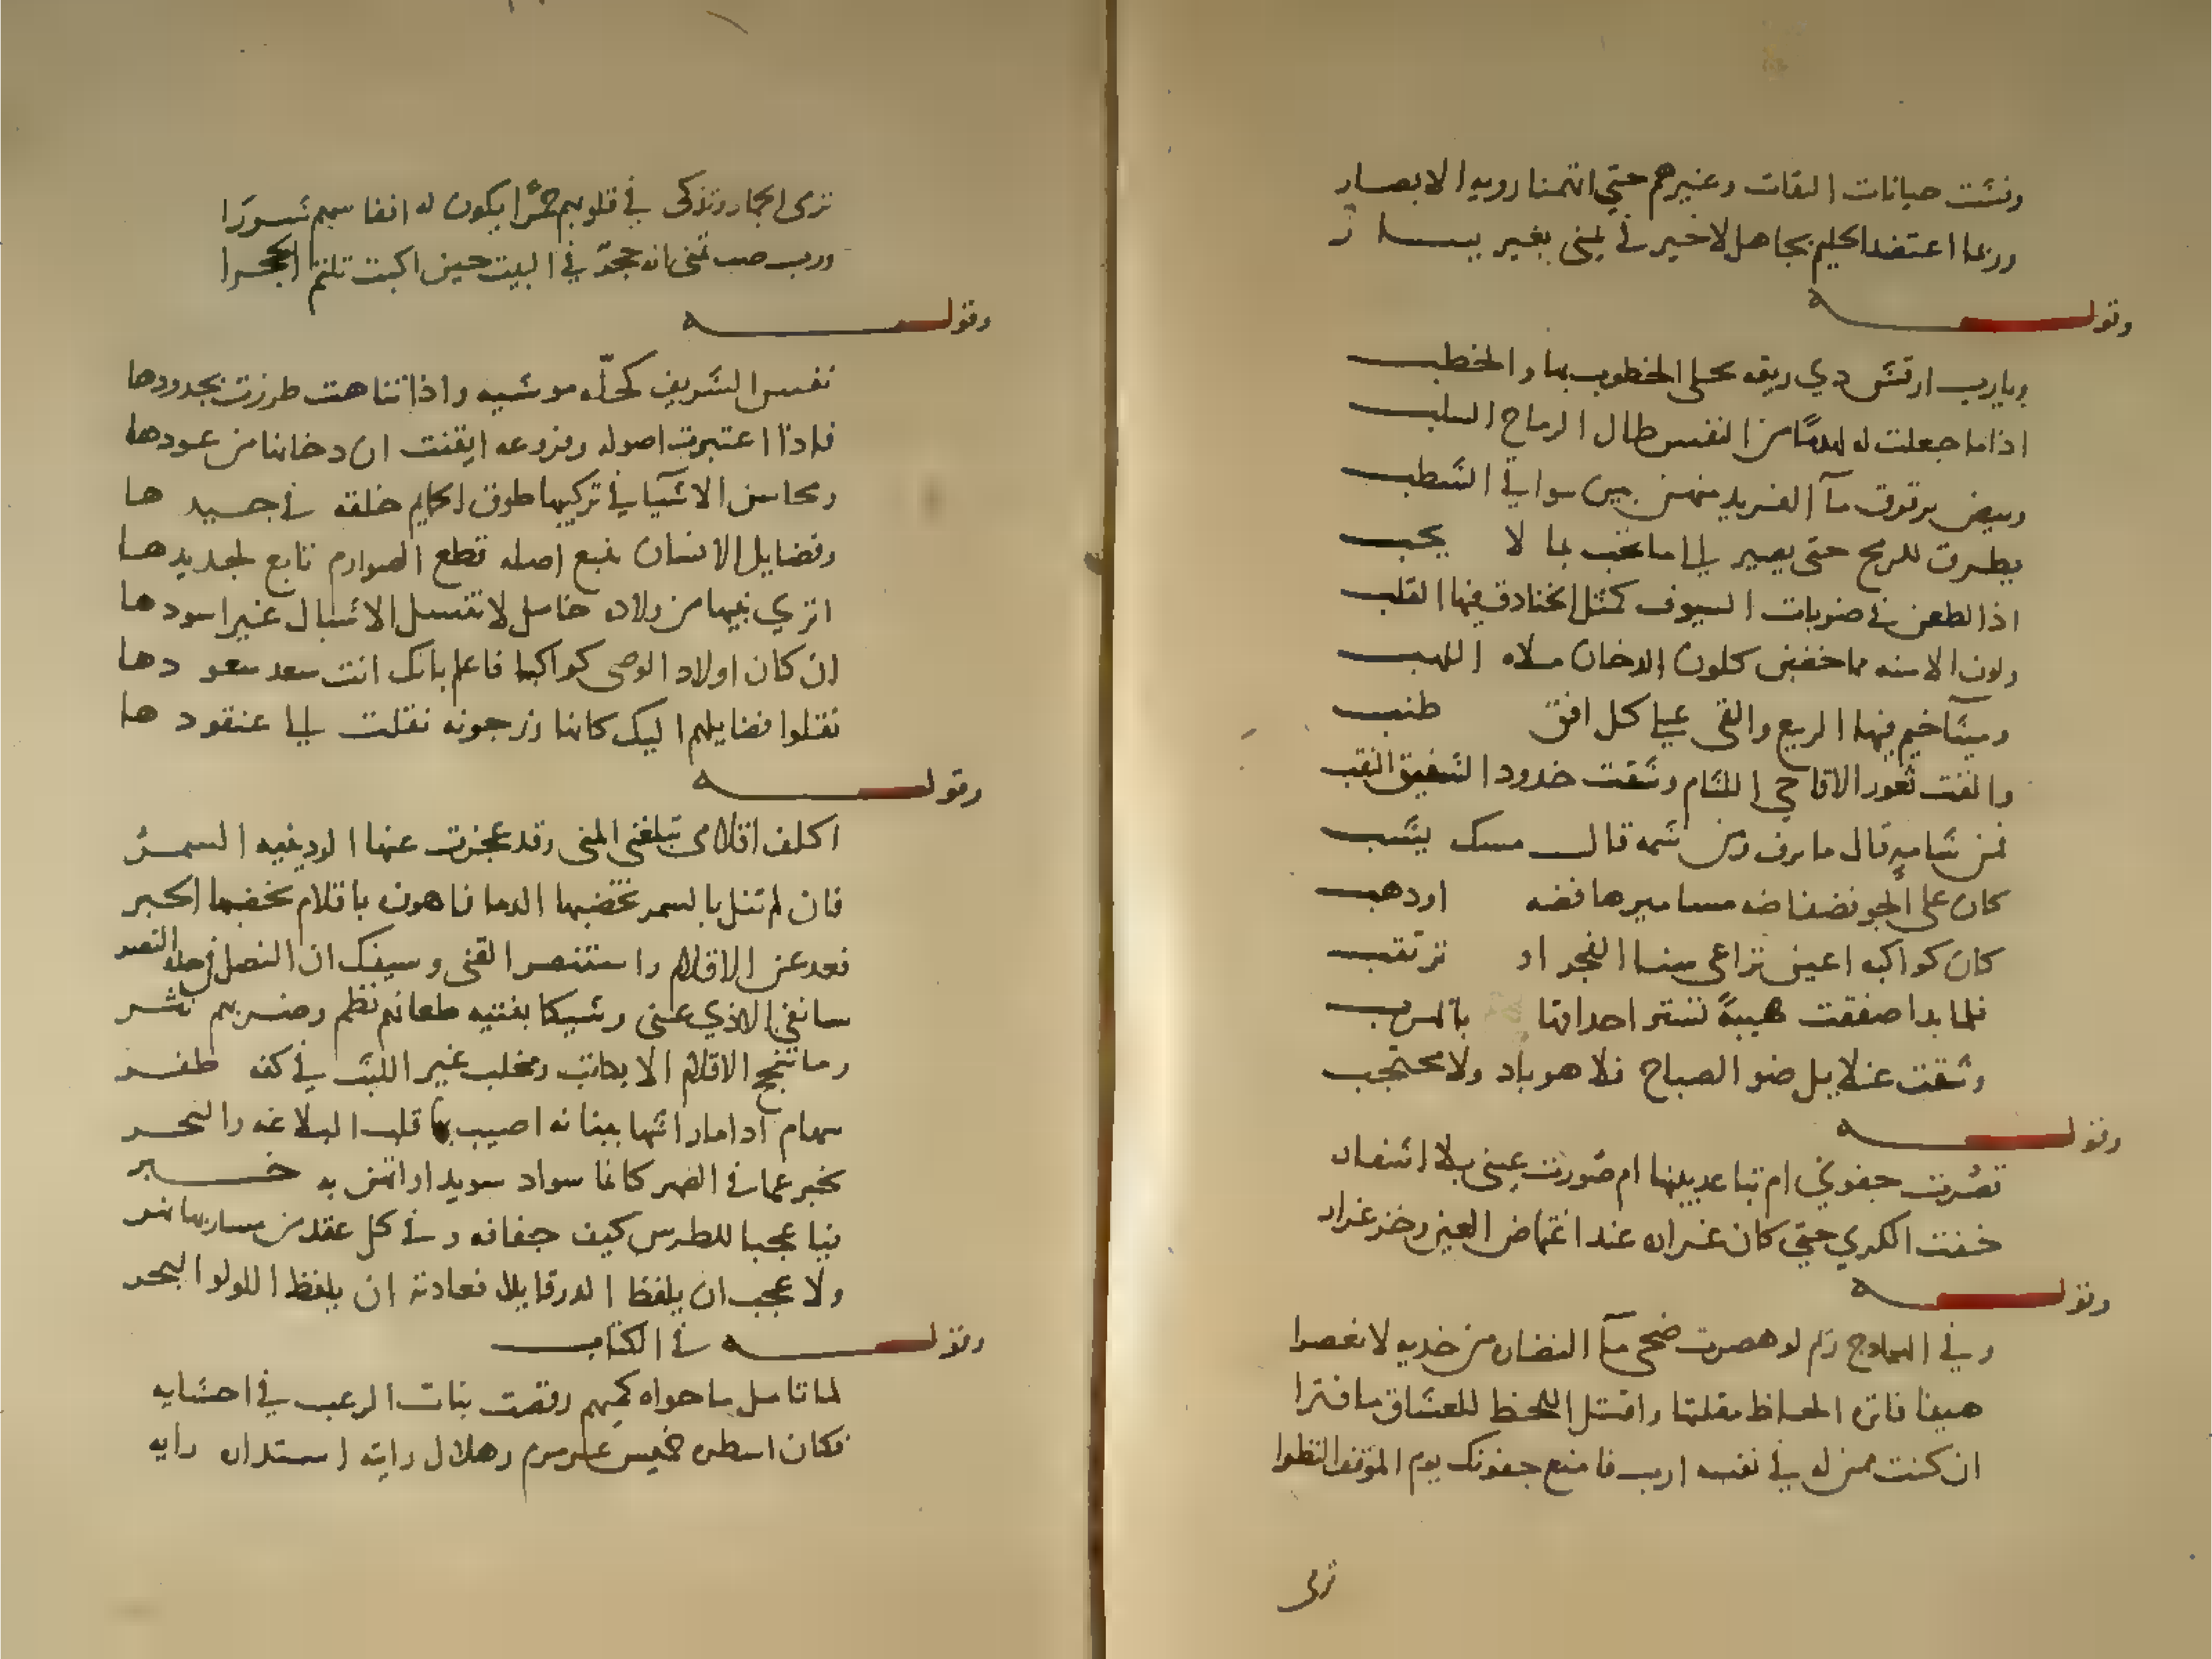 وفشت خيانات الثقات وغيرهم حتى اتهمنا روية الابصار
وربما اعتضد الحليم بجاهل لا خير في يمنى بغير يسار
وقوله
ويارب ارقش ذي ريقه يحلى الخطوب بها والخطب
اذا ما جعلت له من النفس طال الرماح السلب
وبيض ترقرق مآ الفريد منهن بين سواقي الشطب
يطرق للريح حتى يصير الى ما يحب بما لا يحب
اذا الطعن في ضربات السيوف كمثل الخنادق فيها القلب
ولون الاسنه مما خضبن كلون الدخان علاه اللهب
وميثآ خيم فيها الربيع والقى على كل افق طنب
والقت ثغور الاقاحي اللثام وشقت خدود الشقيق النقب
فمن شامه قال ما يرف ومن شمه قال مسك يشب
كان على الجو فضفاضه مساميرها فضه او ذهب
كان كواكبه اعين تراعى سنا الفجر او ترتقب
فلما بدا صفقت هيبةً تستر احداقها بالهرب
وشقت غلايل ضو الصباح فلا هو باد ولا محتجب
وقوله
قصرت جفوني ام تباعد بينها ام صورت عيني بلا اشفار
خفت الكرى حتى كان غراره عند اغتماض العين وخز غرار
وقوله
وفي الهوادج ريم لو هصرت ضحى مآ النضارة من خديه لانعصرا
هيفا فاتن الحاظ مقلتها واقتل اللحظ للعشاق ما فترا
ان كنت ممن له في نفسه ارب فامنع جفونك يوم الموقف النظرا
ترى
ترى الجمار وتذكى في قلوبهم جمرًا يكون له انفاسهم شررا
ورب صب تمنى انه حجر في البيت حين اكبت تلثم الحجرا
وقوله
نفس الشريف كحلّه موشيه واذا تناهت طرزت بجدودها
فاذا اعتبرت اصوله وفروعه ايقنت ان دخانها من عودها
ومحاسن الاشيآ في تركيبها طوق الحمايم خلقه في جيدها
وفضايل الانسان تتبع اصله قطع الصوارم تابع لحديدها
اترى نبيها من ولادة خامل لا تنسل الاشبال غير اسودها
ان كان اولاد الوصي كواكبا فاعلم بانك انت سعد سعودها
نقلوا فضايلهم اليك كانها زرجونه نقلت الى عنقودها
وقوله
اكلف اقلامى تبلغني المنى وقد عجزت عنها الردينيه السمر
فان لم تنل بالسمر تخضبها الدما فاهون باقلام يخضبها الحبر
فعد عن الاقلام واستنصر القنى وسيفك ان النصل في حده النصر
سانفي الذي عنى وشيكا بفتيه طعانهم نظم وضربهم نثر
وما تنجح الاقلام الا بكاتب ومخلب غير الليث في كفه ظفر
سهام اذا ما راشها ببنانه اصيب بها قلب البلاغه والنحر
يخبر عما في الضمير كانما سواد سويدا واتته به خبر
فيا عجبا للطرس كيف جفافه وفي كل عقد من
ولا عجب ان يلفظ الدر قايلا فعادته ان يلفظ اللولو البحر
وقوله في الكتاب
لما تامل ما حواه كميهم رقصت بنات الرعب في احشايه
فكان اسطره خميس عرمرم وهلال رايته استداره رايه